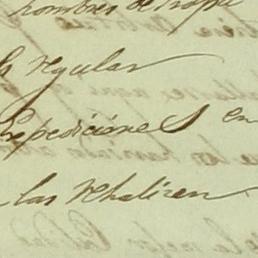 hombres de tropa
regular
Expediciones en
las rehalizen